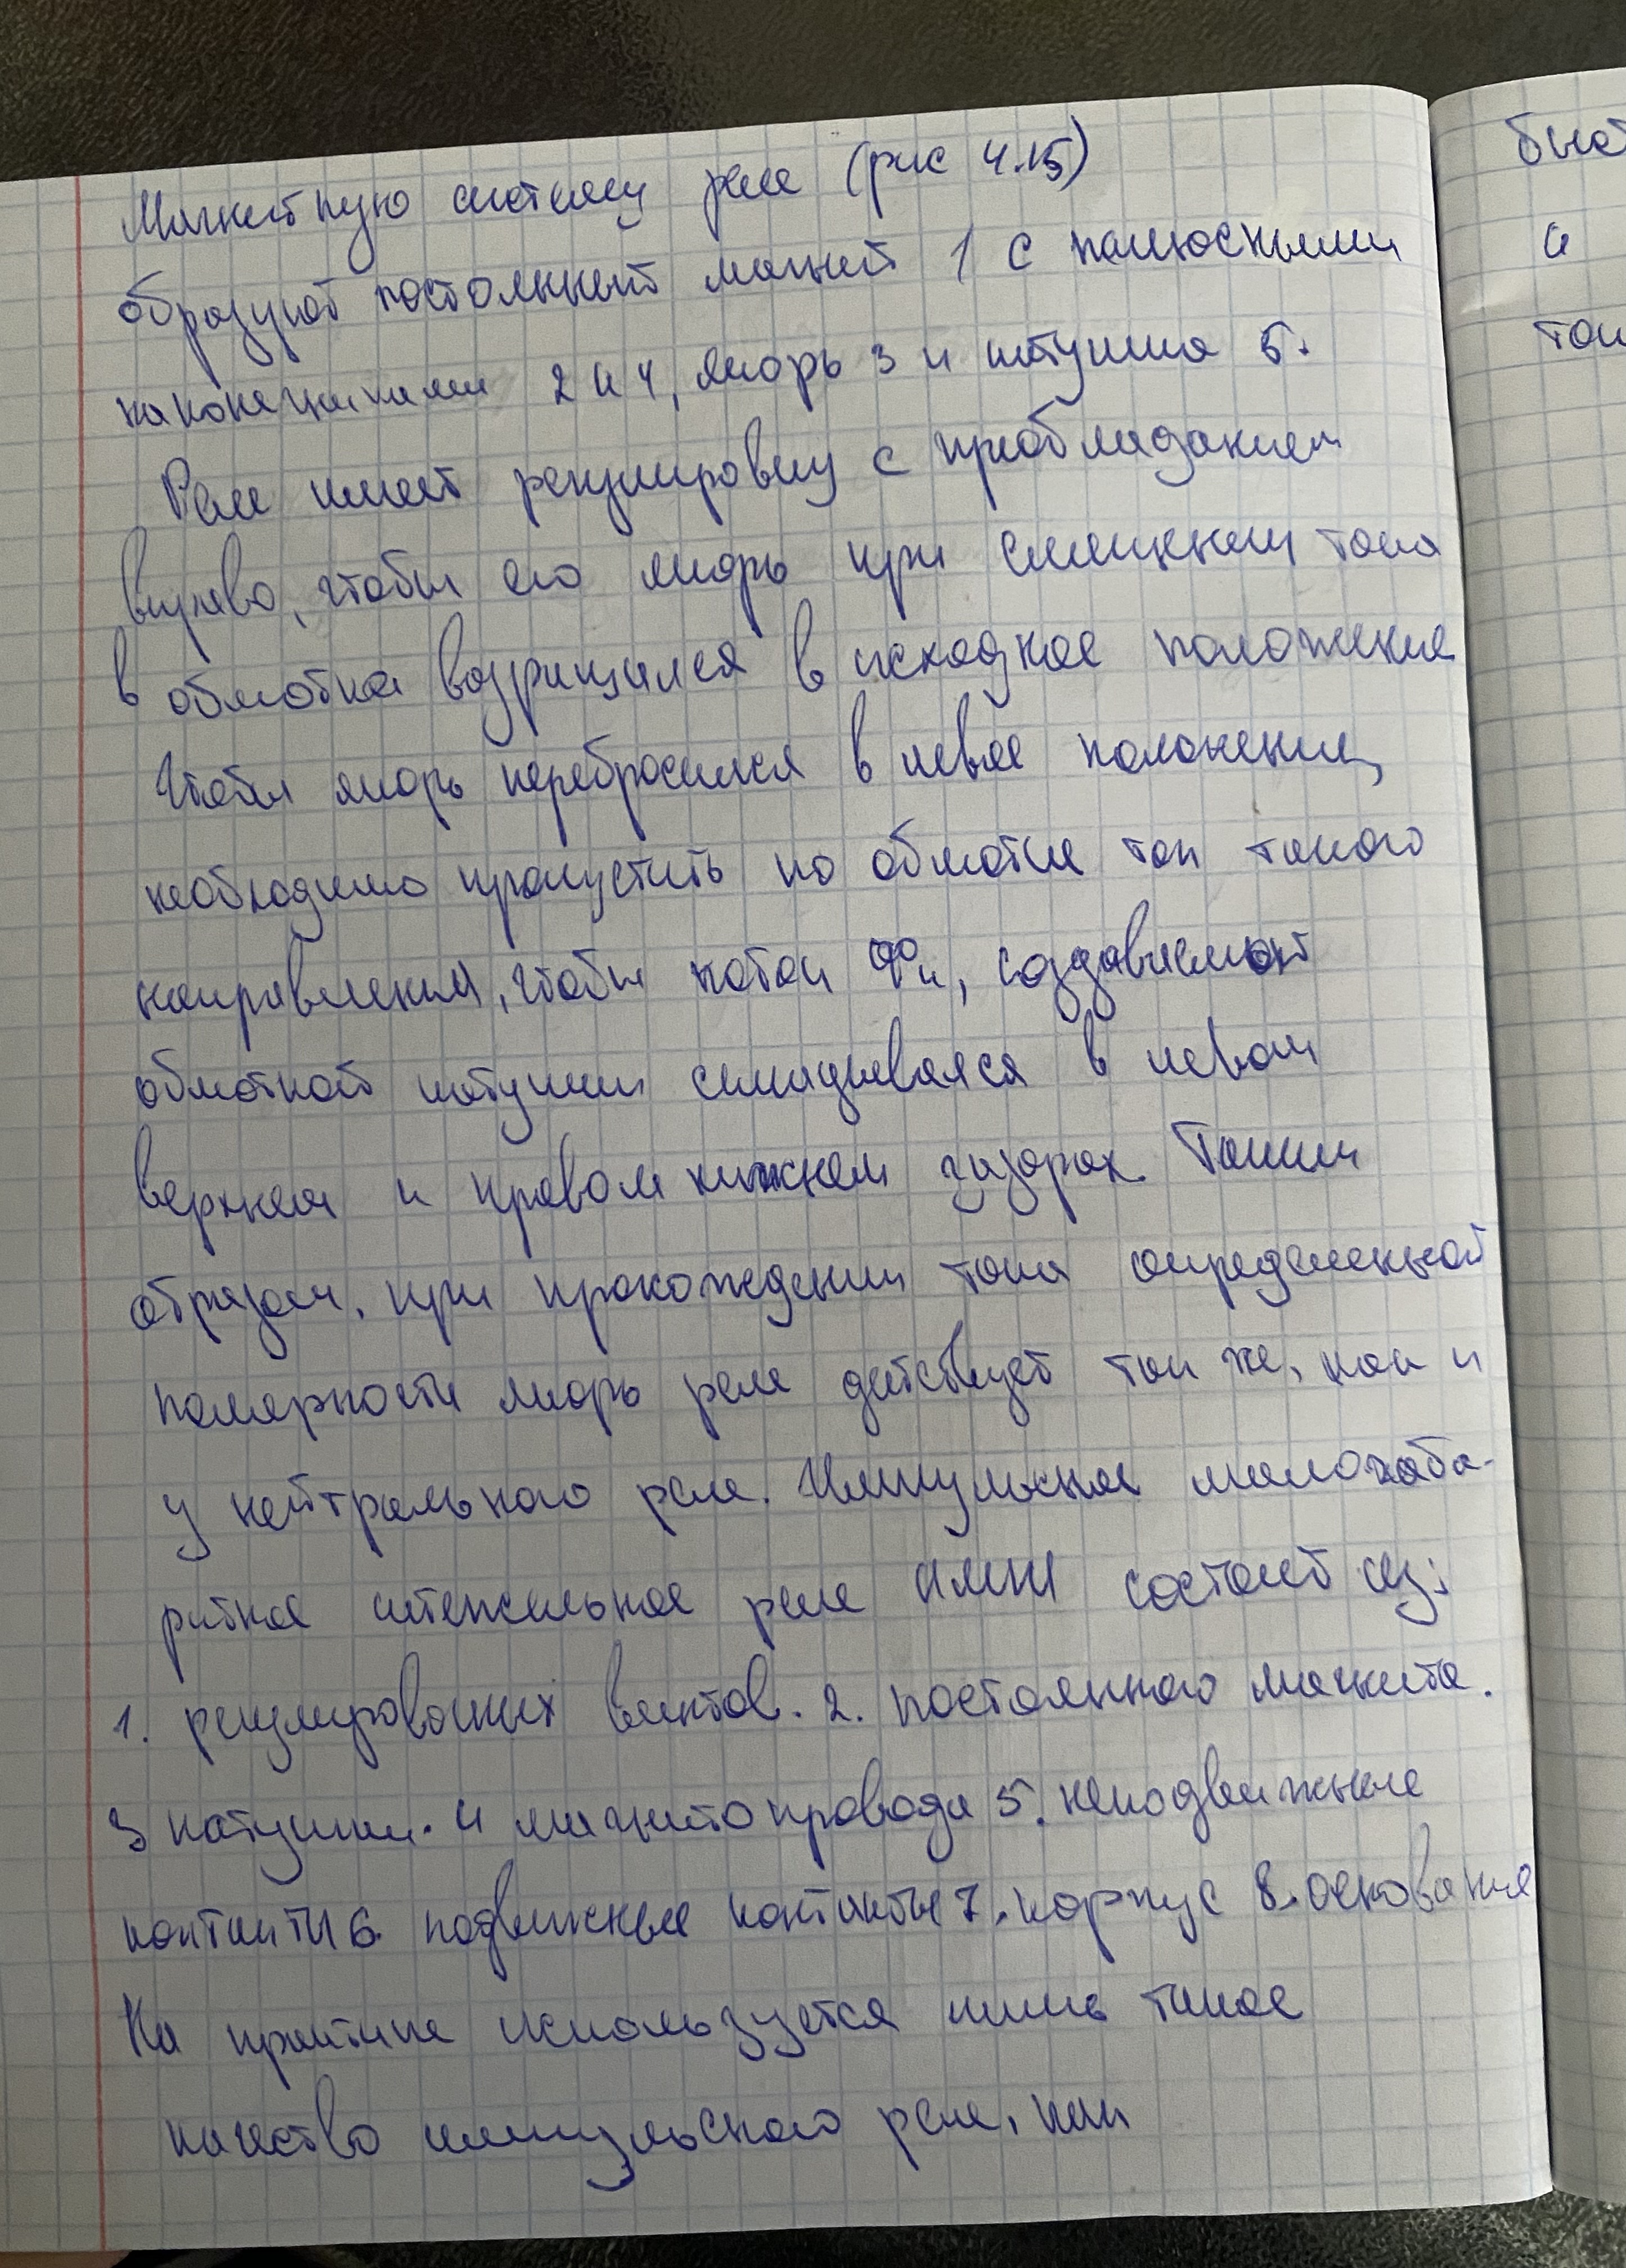 Магнитную систему реле (рис 4.15)
образуют постоянный магнит 1 с полюсными
наконечниками 2 и 4, якорь 3 и катушка 5.
Реле имеет регулировку с преобладанием
вправо, чтобы его якорь при тока
в обмотке возращался в исходное положение
Чтобы якорь перебросился в левое положение,
необходимо пропустить по обмотке ток такого
направления, чтобы поток Фк, создаваемый
обмоткой катушки складывался в левом
верхнем и правом нижнем зазорах. Таким
образом, при прохождении тока определенной
полярности якорь реле действует так же, как и
у нейтрального реле. Импульсное малогаба-
ритное штепсельное реле ИМШ состоит из:
1. регулировочных винтов. 2. постоянного магнита.
3 катушки. 4 магнитопровода 5. неподвижные
контакты 6. подвижные контакты 7. корпус 8. основания
На практике используется лишь такое
качество импульсного реле, как
быст
и
ток